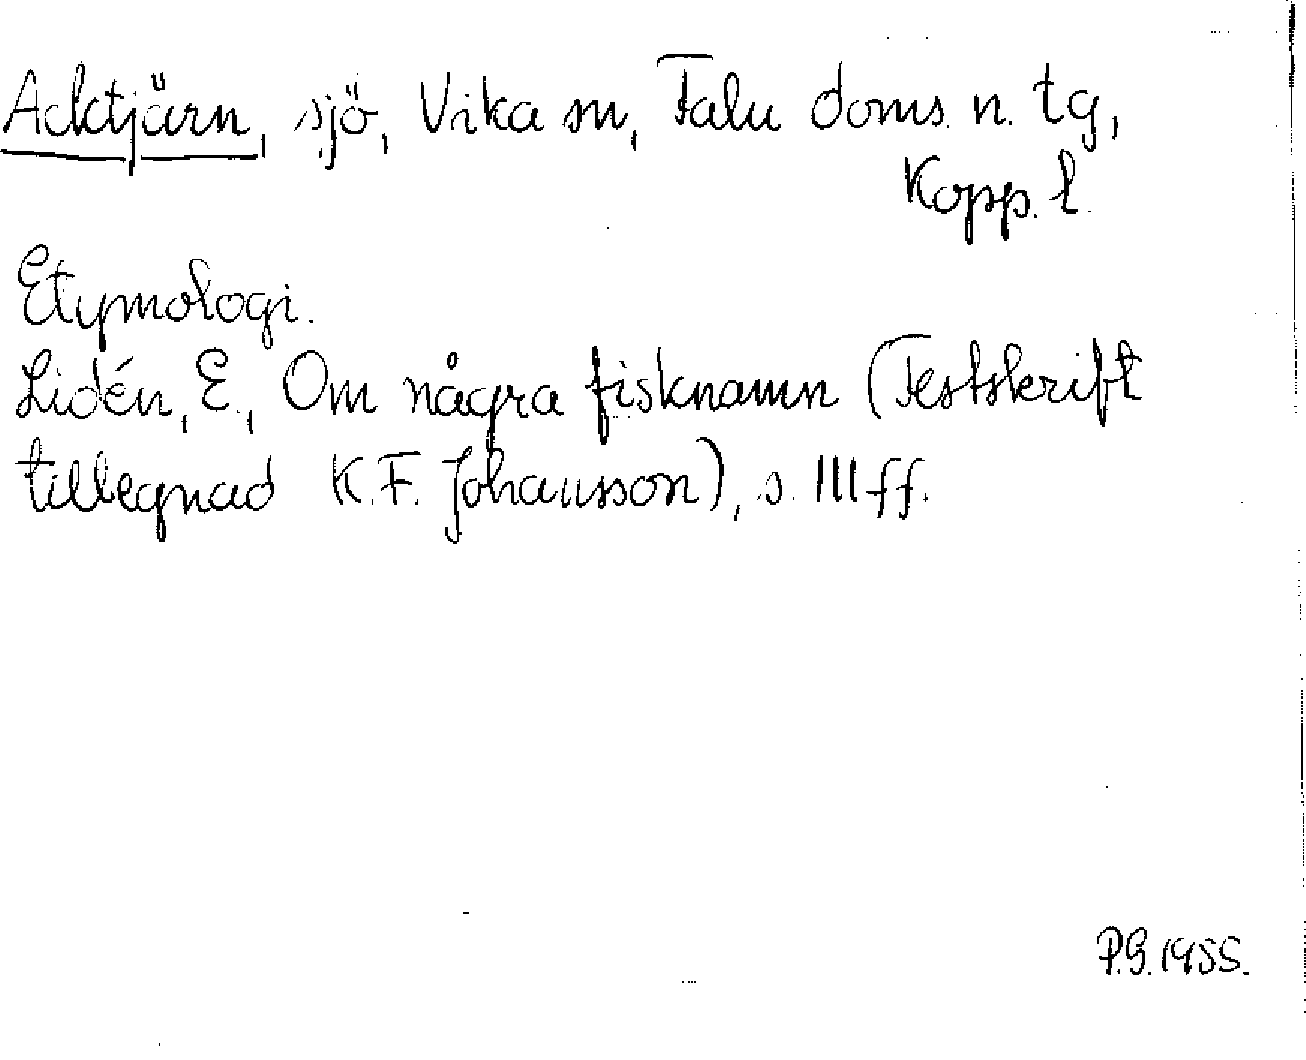 Acktjärn, sjö, Vika sn, Falu doms. n. tg,
Kopp. l.
Etymologi.
Lidén, E., Om några fisknamn (Festskrift
tillegnad K.F. Johansson), s. 111 ff.
P.G. 1955.